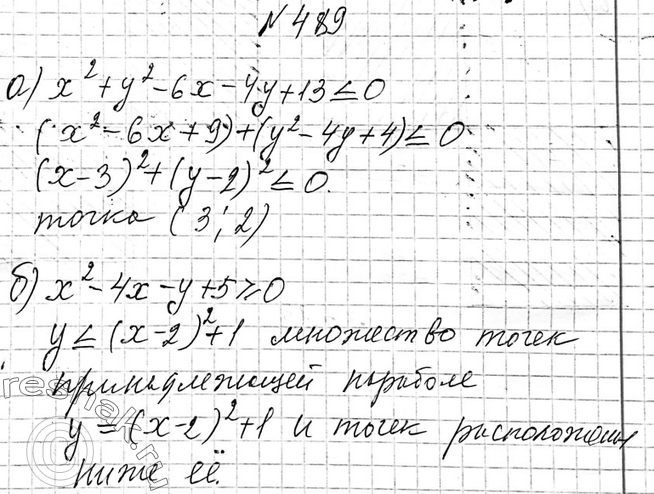 №489
а) x² + y² - 6x - 4y + 13 ≤ 0
(x² - 6x + 9) + (y² - 4y + 4) ≤ 0
(x-3)² + (y-2)² ≤ 0.
точка (3; 2)
б) x² - 4x - y + 5 ≥ 0
y ≤ (x-2)² + 1 множество точек
принадлежащей параболе
y = (x-2)² + 1 и точек расположены
ниже её.